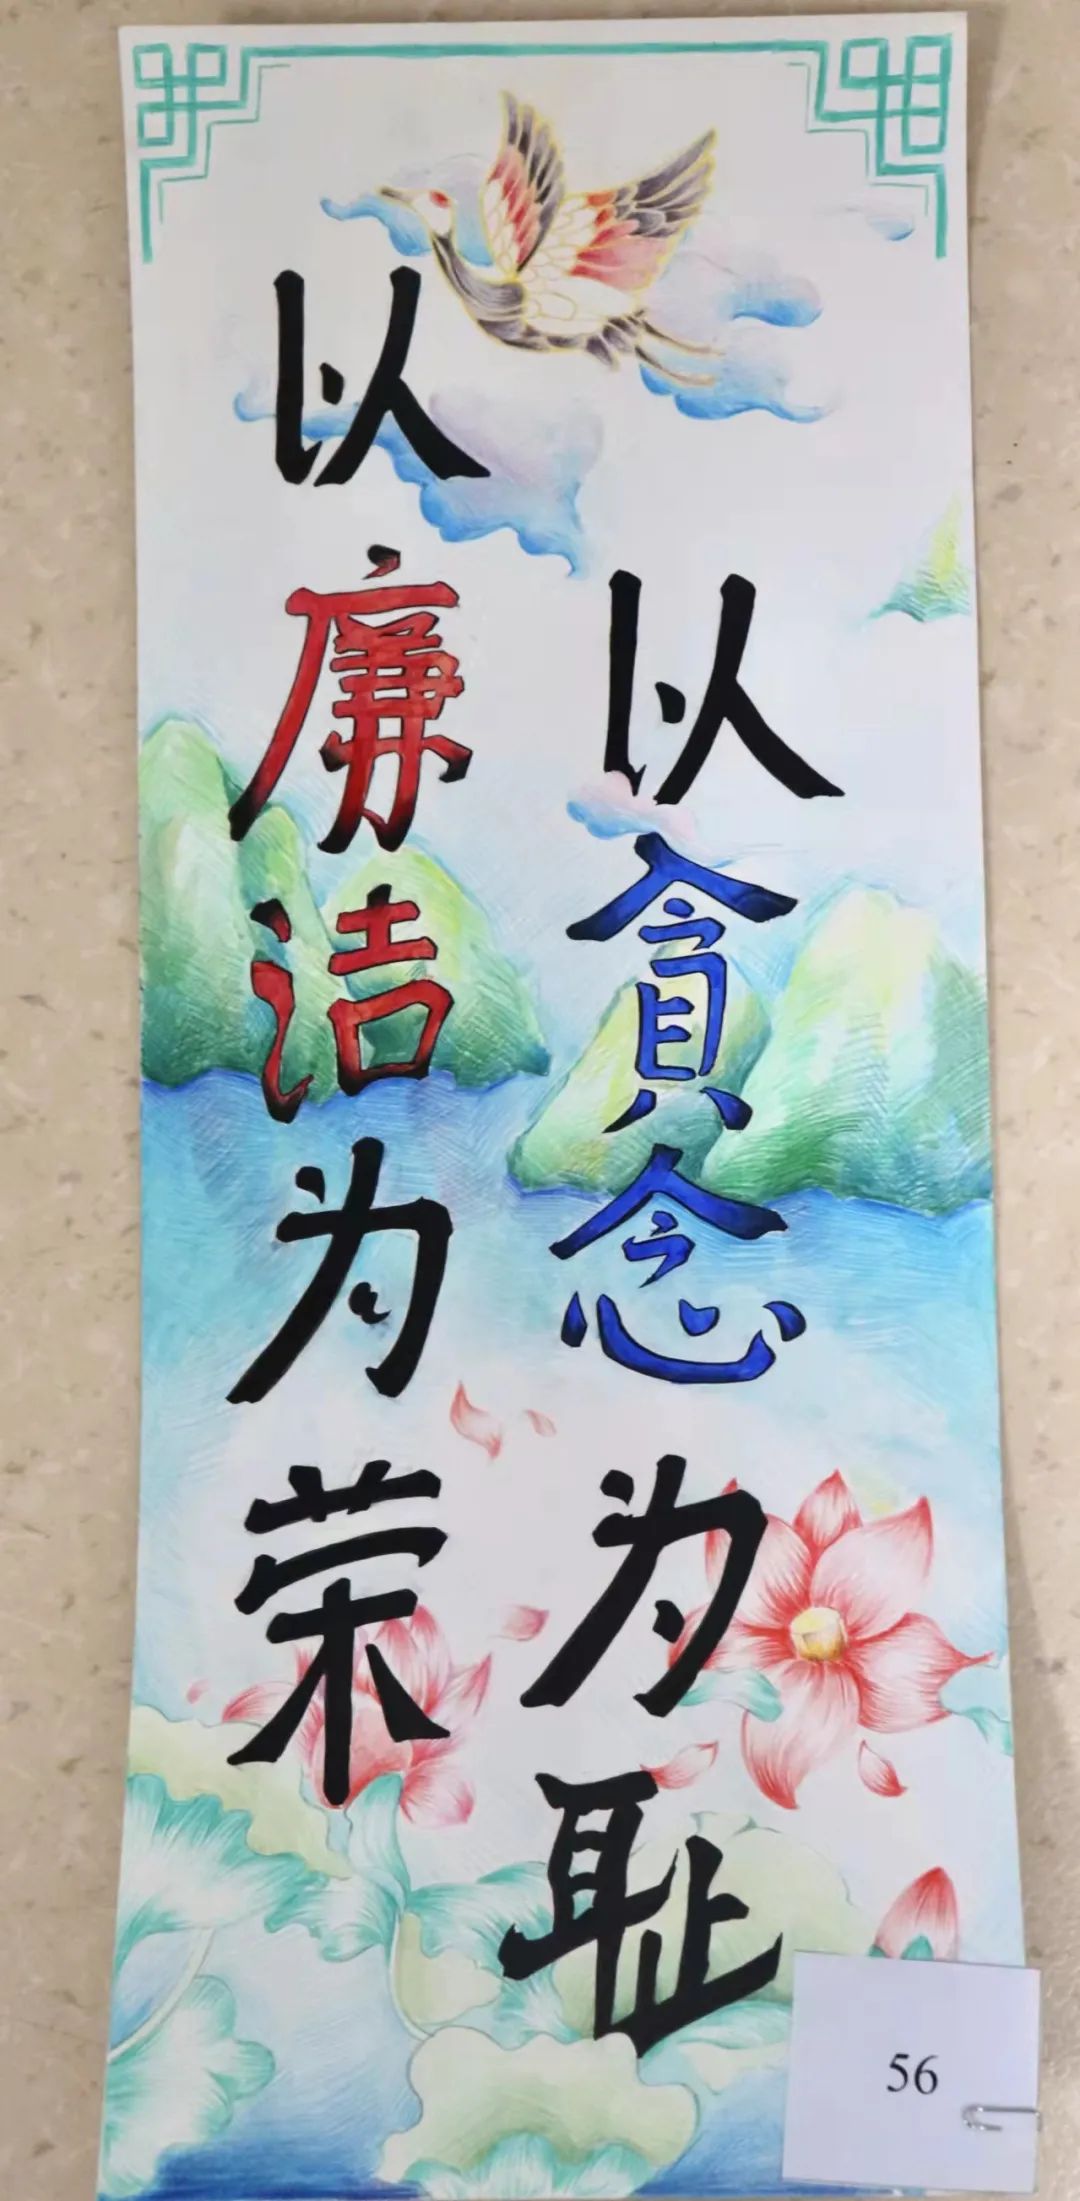 以廉洁为荣
以貪念为耻
56